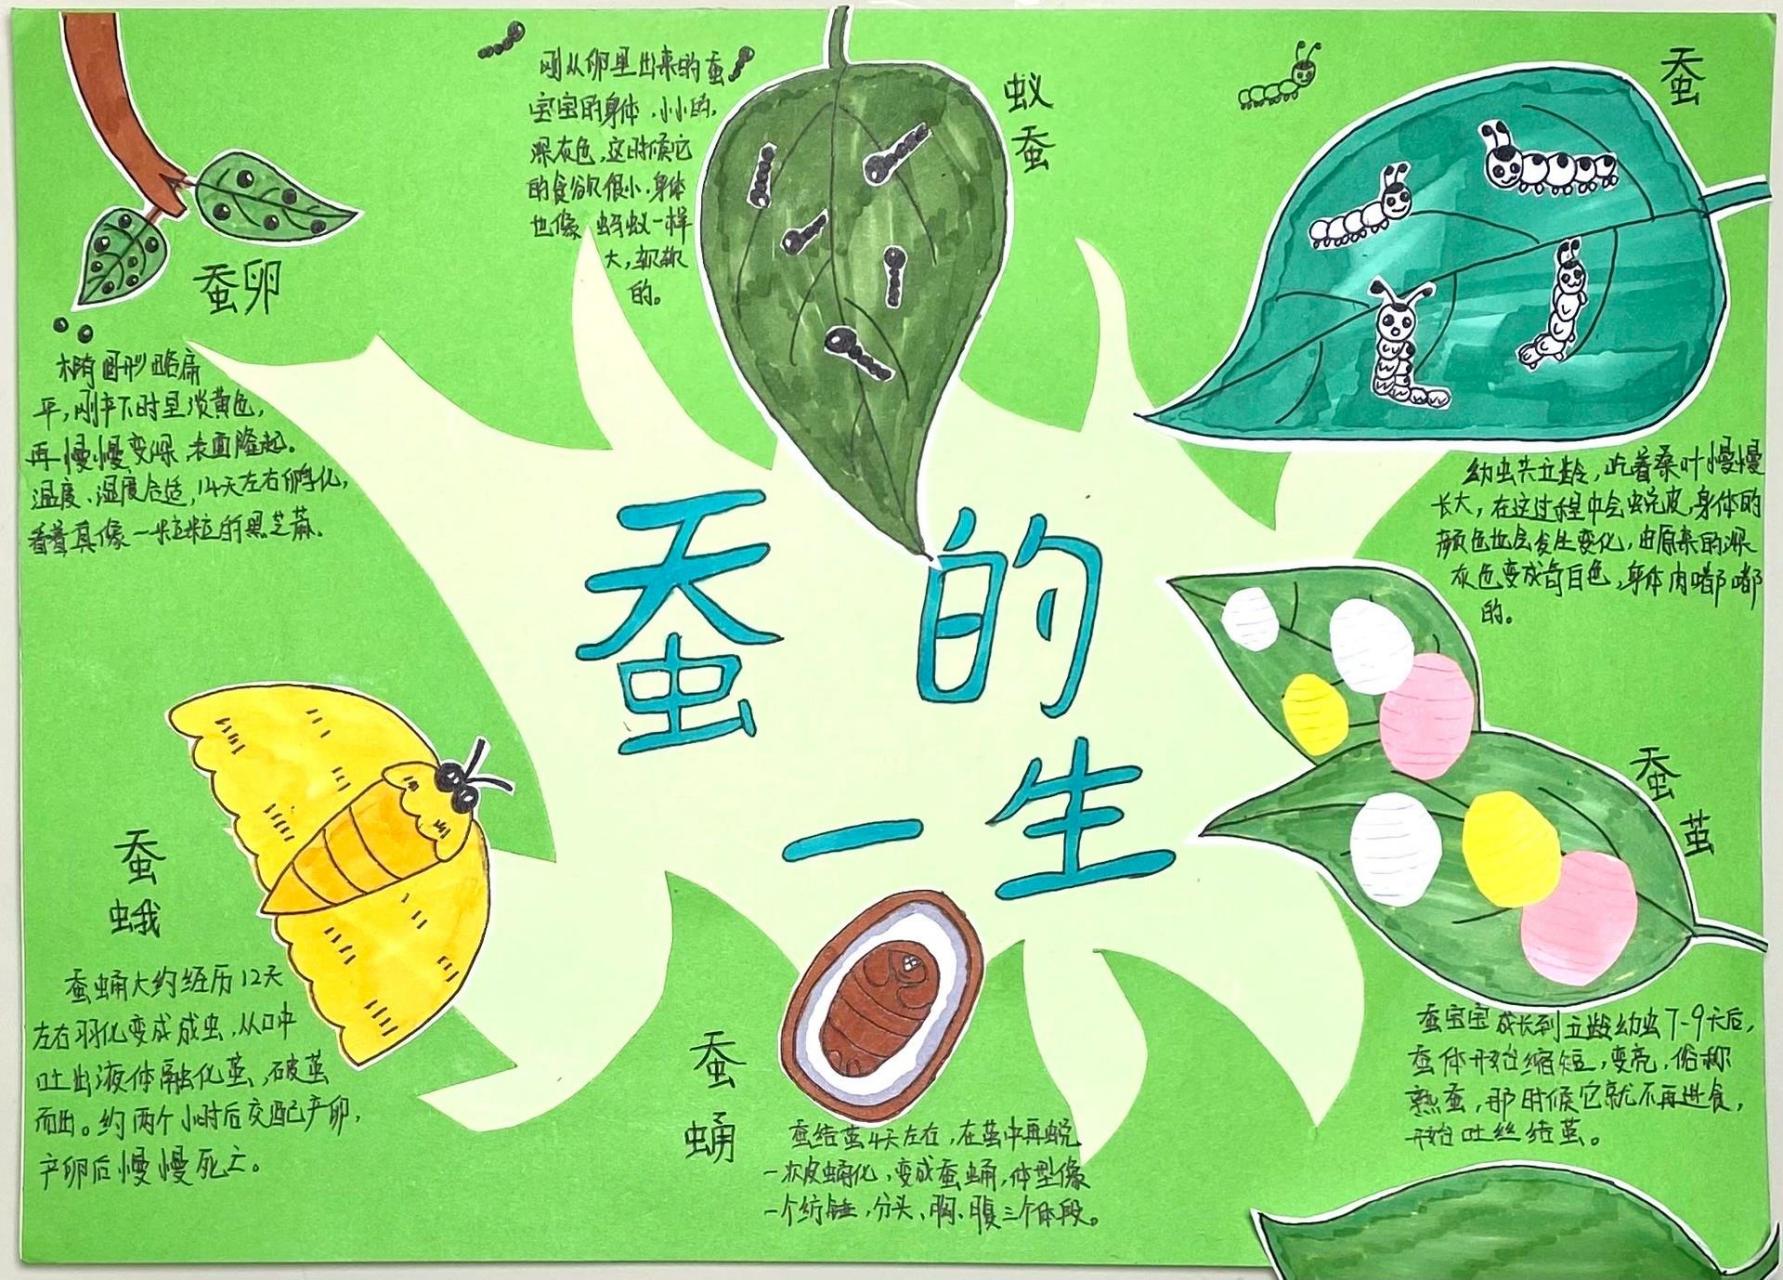 蚕的
一生
蚕卵
椭圆形略扁
平,刚产下时呈淡黄色,
再慢慢变深,表面隆起。
温度、湿度合适,14天左右孵化,
看着真像一粒粒的黑芝麻。
刚从卵里出来的蚕
宝宝的身体,小小的,
深灰色,这时候它
的食欲很小,身体
也像蚂蚁一样
大,软软
的。
蚁
蚕
蚕
幼虫共五龄,吃着桑叶慢慢
长大,在这过程中会蜕皮,身体的
颜色也会发生变化,由原来的深
灰色变成奇白色,身体肉嘟嘟
的。
蚕
茧
蚕宝宝成长到五龄幼虫7-9天后,
蚕体开始缩短,变亮,俗称
熟蚕,那时候它就不再进食,
开始吐丝结茧。
蚕
蛹
蚕结茧4天左右,在茧中再蜕
一次皮蛹化,变成蚕蛹,体型像
一个纺锤,分头、胸、腹三个体段。
蚕
蛾
蚕蛹大约经历12天
左右羽化变成成虫,从口中
吐出液体融化茧,破茧
而出。约两个小时后交配产卵,
产卵后慢慢死亡。